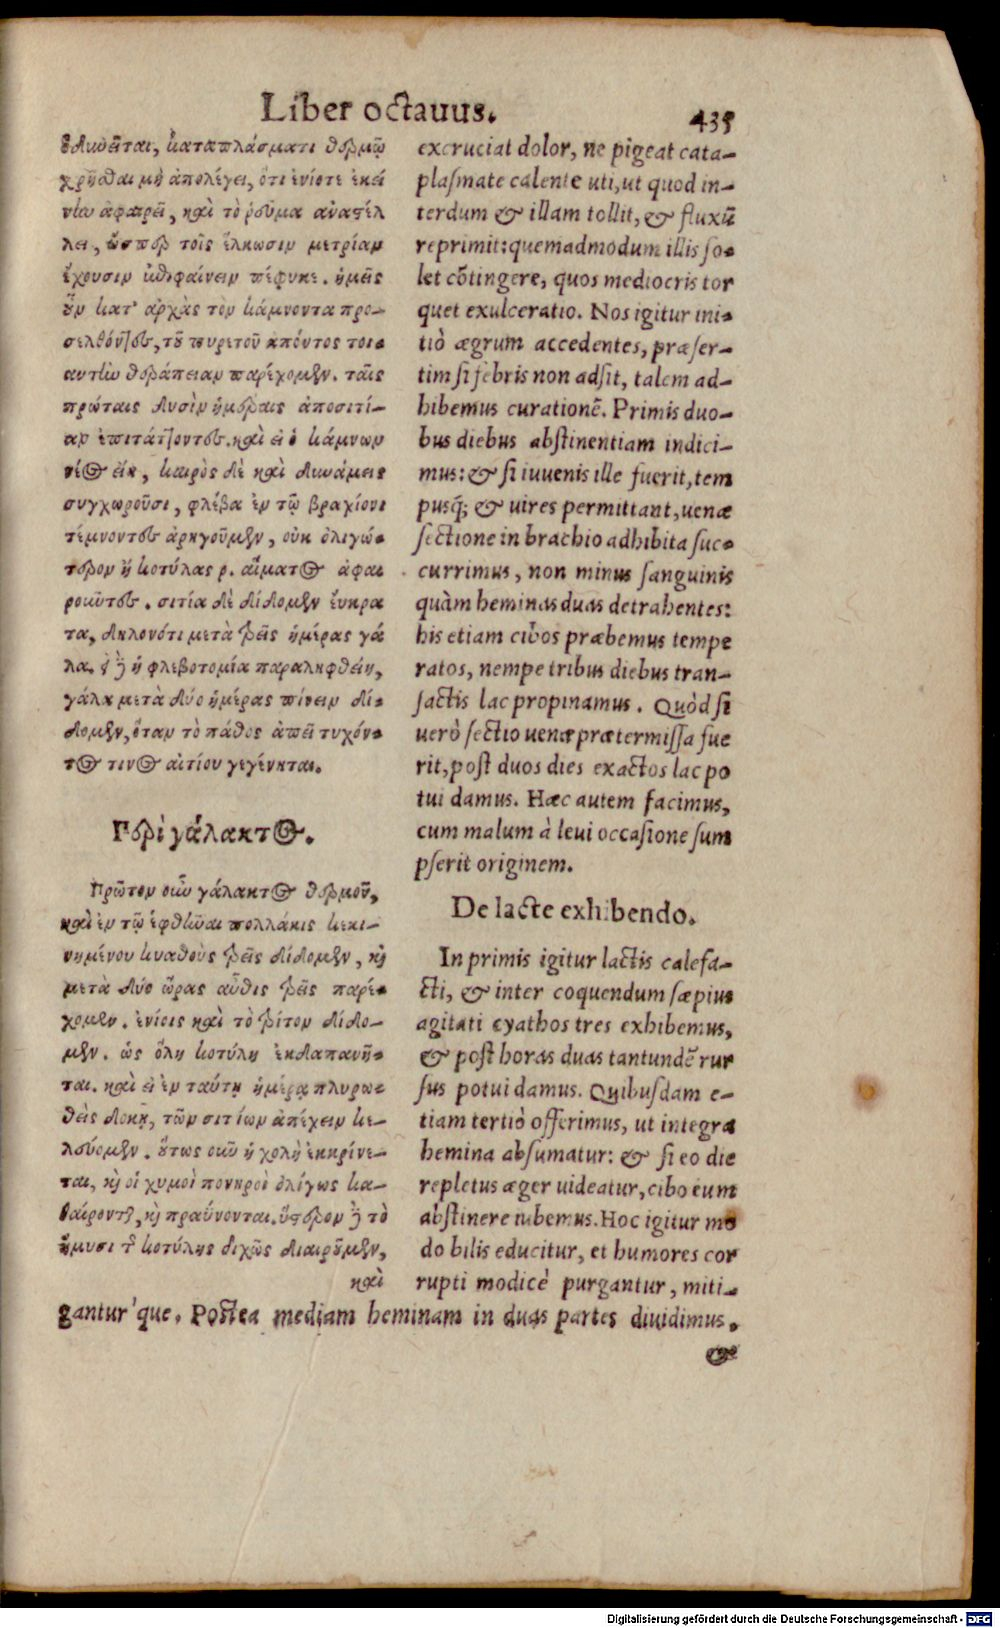 Liber octauus. 435
ὀδυνῶται, καταπλάσματι θερμῷ
χρῆσθαι μὴ ἀπολέγει, ὅτι ἐνίοτε ἐκεί
νην ἀφαιρεῖ, καὶ τὸ ῥεῦμα ἀναστέλ
λει, ὥσπερ τοῖς ἕλκωσιν μετρίαν
ἔχουσιν ἐπιφαίνειν πέφυκε. ἡμεῖς
οὖν κατ' ἀρχὰς τὸν κάμνοντα προ-
σελθόντες, τοῦ πυρετοῦ ἀπόντος τοι-
αυτὴν θεράπειαν παρέχομεν. ταῖς
πρώταις δυσὶν ἡμέραις ἀποσιτί-
αν ἐπιτάττοντες. καὶ εἰ ὁ κάμνων
νέος εἴη, καιρὸς δὲ καὶ δυνάμεις
συγχωροῦσι, φλέβα ἐν τῷ βραχίονι
τέμνοντες ἀρηγοῦμεν, οὐκ ὀλιγώ-
τερον ἢ κοτύλας β. αἵματος ἀφαι
ροῦντες. σιτία δὲ δίδομεν εὔκρα
τα, δηλονότι μετὰ τρεῖς ἡμέρας γά
λα. εἰ δὲ ἡ φλεβοτομία παραληφθείη,
γάλα μετὰ δύο ἡμέρας πίνειν δί-
δομεν, ὅταν τὸ πάθος ἀπὸ τυχόν-
τος τινος αἰτίου γεγένηται.
Περὶ γάλακτος.
Πρῶτον οὖν γάλακτος θερμοῦ,
καὶ ἐν τῷ ἑφθῆναι πολλάκις κεκι-
νημένου κυαθοὺς τρεῖς δίδομεν, καὶ
μετὰ δύο ὥρας αὖθις τρεῖς παρέ-
χομεν. ἐνίοις καὶ τὸ τρίτον δίδο-
μεν. ὡς ὅλη κοτύλη ἐκδαπανῆ-
ται. καὶ εἰ ἐν ταύτῃ ἡμέρᾳ πλυρω-
θεὶς δοκῇ, τῶν σιτίων ἀπέχειν κε-
λεύομεν. οὕτως οὖν ἡ χολὴ ἐκκρίνε-
ται, καὶ οἱ χυμοὶ πονηροὶ ὀλίγως κα-
θαίρονται, καὶ πραΰνονται. ὕστερον δὲ τὸ
ἥμυσι τῆς κοτύλης διχῶς διαιροῦμεν,
καὶ
excruciat dolor, ne pigeat cata-
plasmate calente uti, ut quod in-
terdum & illam tollit, & fluxũ
reprimit: quemadmodum illis so-
let cõtingere, quos mediocris tor
quet exulceratio. Nos igitur ini-
tiò ægrum accedentes, præser-
tim si febris non adsit, talem ad-
hibemus curationẽ. Primis duo-
bus diebus abstinentiam indici-
mus: & si iuuenis ille fuerit, tem
pusq́; & uires permittant, uenæ
sectione in brachio adhibita suc-
currimus, non minus sanguinis
quàm heminas duas detrahentes:
his etiam cibos præbemus tempe
ratos, nempe tribus diebus tran-
sactis lac propinamus. Quòd si
uerò sectio uenæ prætermissa fue
rit, post duos dies exactos lac po
tui damus. Hæc autem facimus,
cum malum à leui occasione sum
pserit originem.
De lacte exhibendo.
In primis igitur lactis calefa-
cti, & inter coquendum sæpius
agitati cyathos tres exhibemus,
& post horas duas tantundẽ rur
sus potui damus. Quibusdam e-
tiam tertiò offerimus, ut integra
hemina absumatur: & si eo die
repletus æger uideatur, cibo eum
abstinere iubemus. Hoc igitur mo
do bilis educitur, et humores cor
rupti modicè purgantur, miti-
gantur'que. Postea mediam heminam in duas partes diuidimus.
&
Digitalisierung gefördert durch die Deutsche Forschungsgemeinschaft - DFG